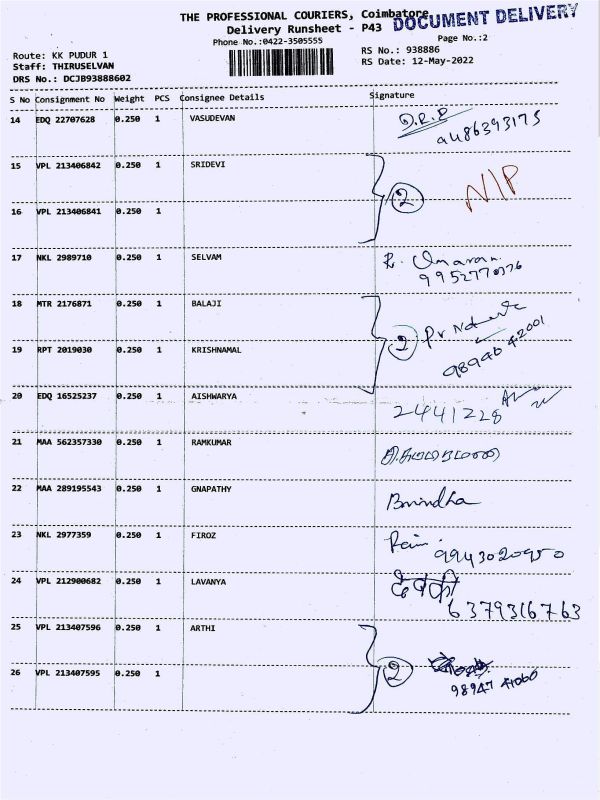 THE PROFESSIONAL COURIERS, Coimbatore
DOCUMENT DELIVERY
Delivery Runsheet - P43
Phone No.:0422-3505555
Page No.:2
Route: KK PUDUR 1
RS No.: 938886
Staff: THIRUSELVAN
RS Date: 12-May-2022
DRS No.: DCJB93888602
S No Consignment No Weight PCS Consignee Details Signature
14 EDQ 22707628 0.250 1 VASUDEVAN
15 VPL 213406842 0.250 1 SRIDEVI
2 N/P
16 VPL 213406841 0.250 1
17 NKL 2989710 0.250 1 SELVAM R.
18 MTR 2176871 0.250 1 BALAJI
2
19 RPT 2019030 0.250 1 KRISHNAMAL 98940 42001
20 EDQ 16525237 0.250 1 AISHWARYA 2441228
21 MAA 562357330 0.250 1 RAMKUMAR
22 MAA 289195543 0.250 1 GNAPATHY
23 NKL 2977359 0.250 1 FIROZ
9943020950
24 VPL 212900682 0.250 1 LAVANYA देवकी
6379316763
25 VPL 213407596 0.250 1 ARTHI
2
26 VPL 213407595 0.250 1 98947 41060